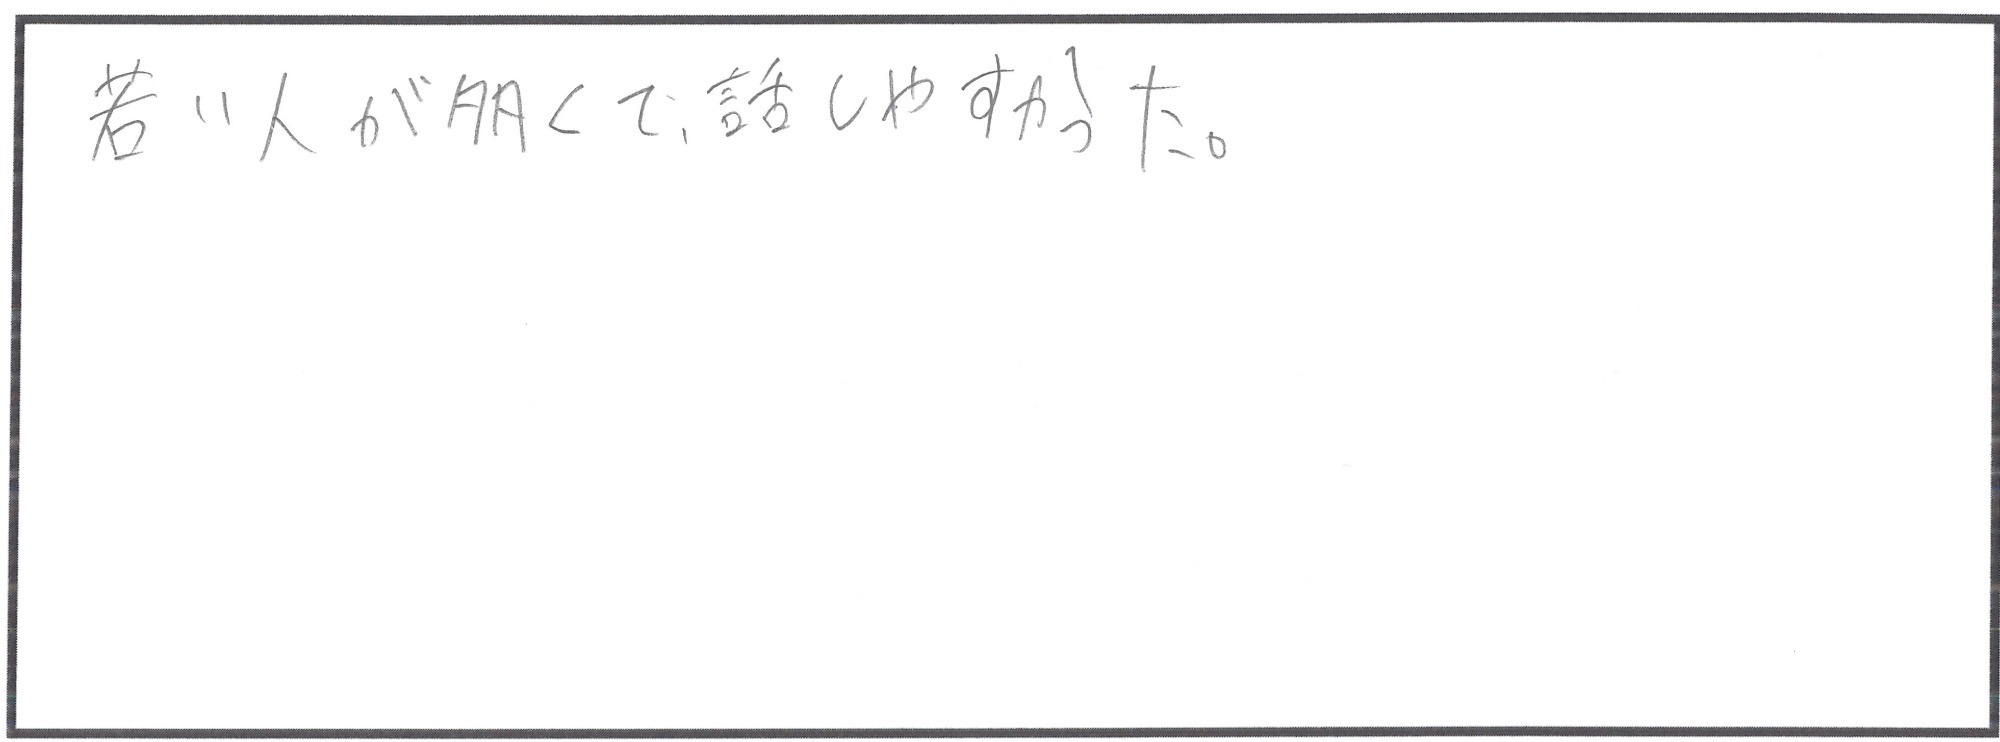 若い人が多くて、話しやすかった。